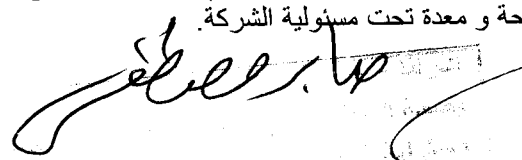 حة و معدة تحت مسئولية الشركة.
صابر مصطفى